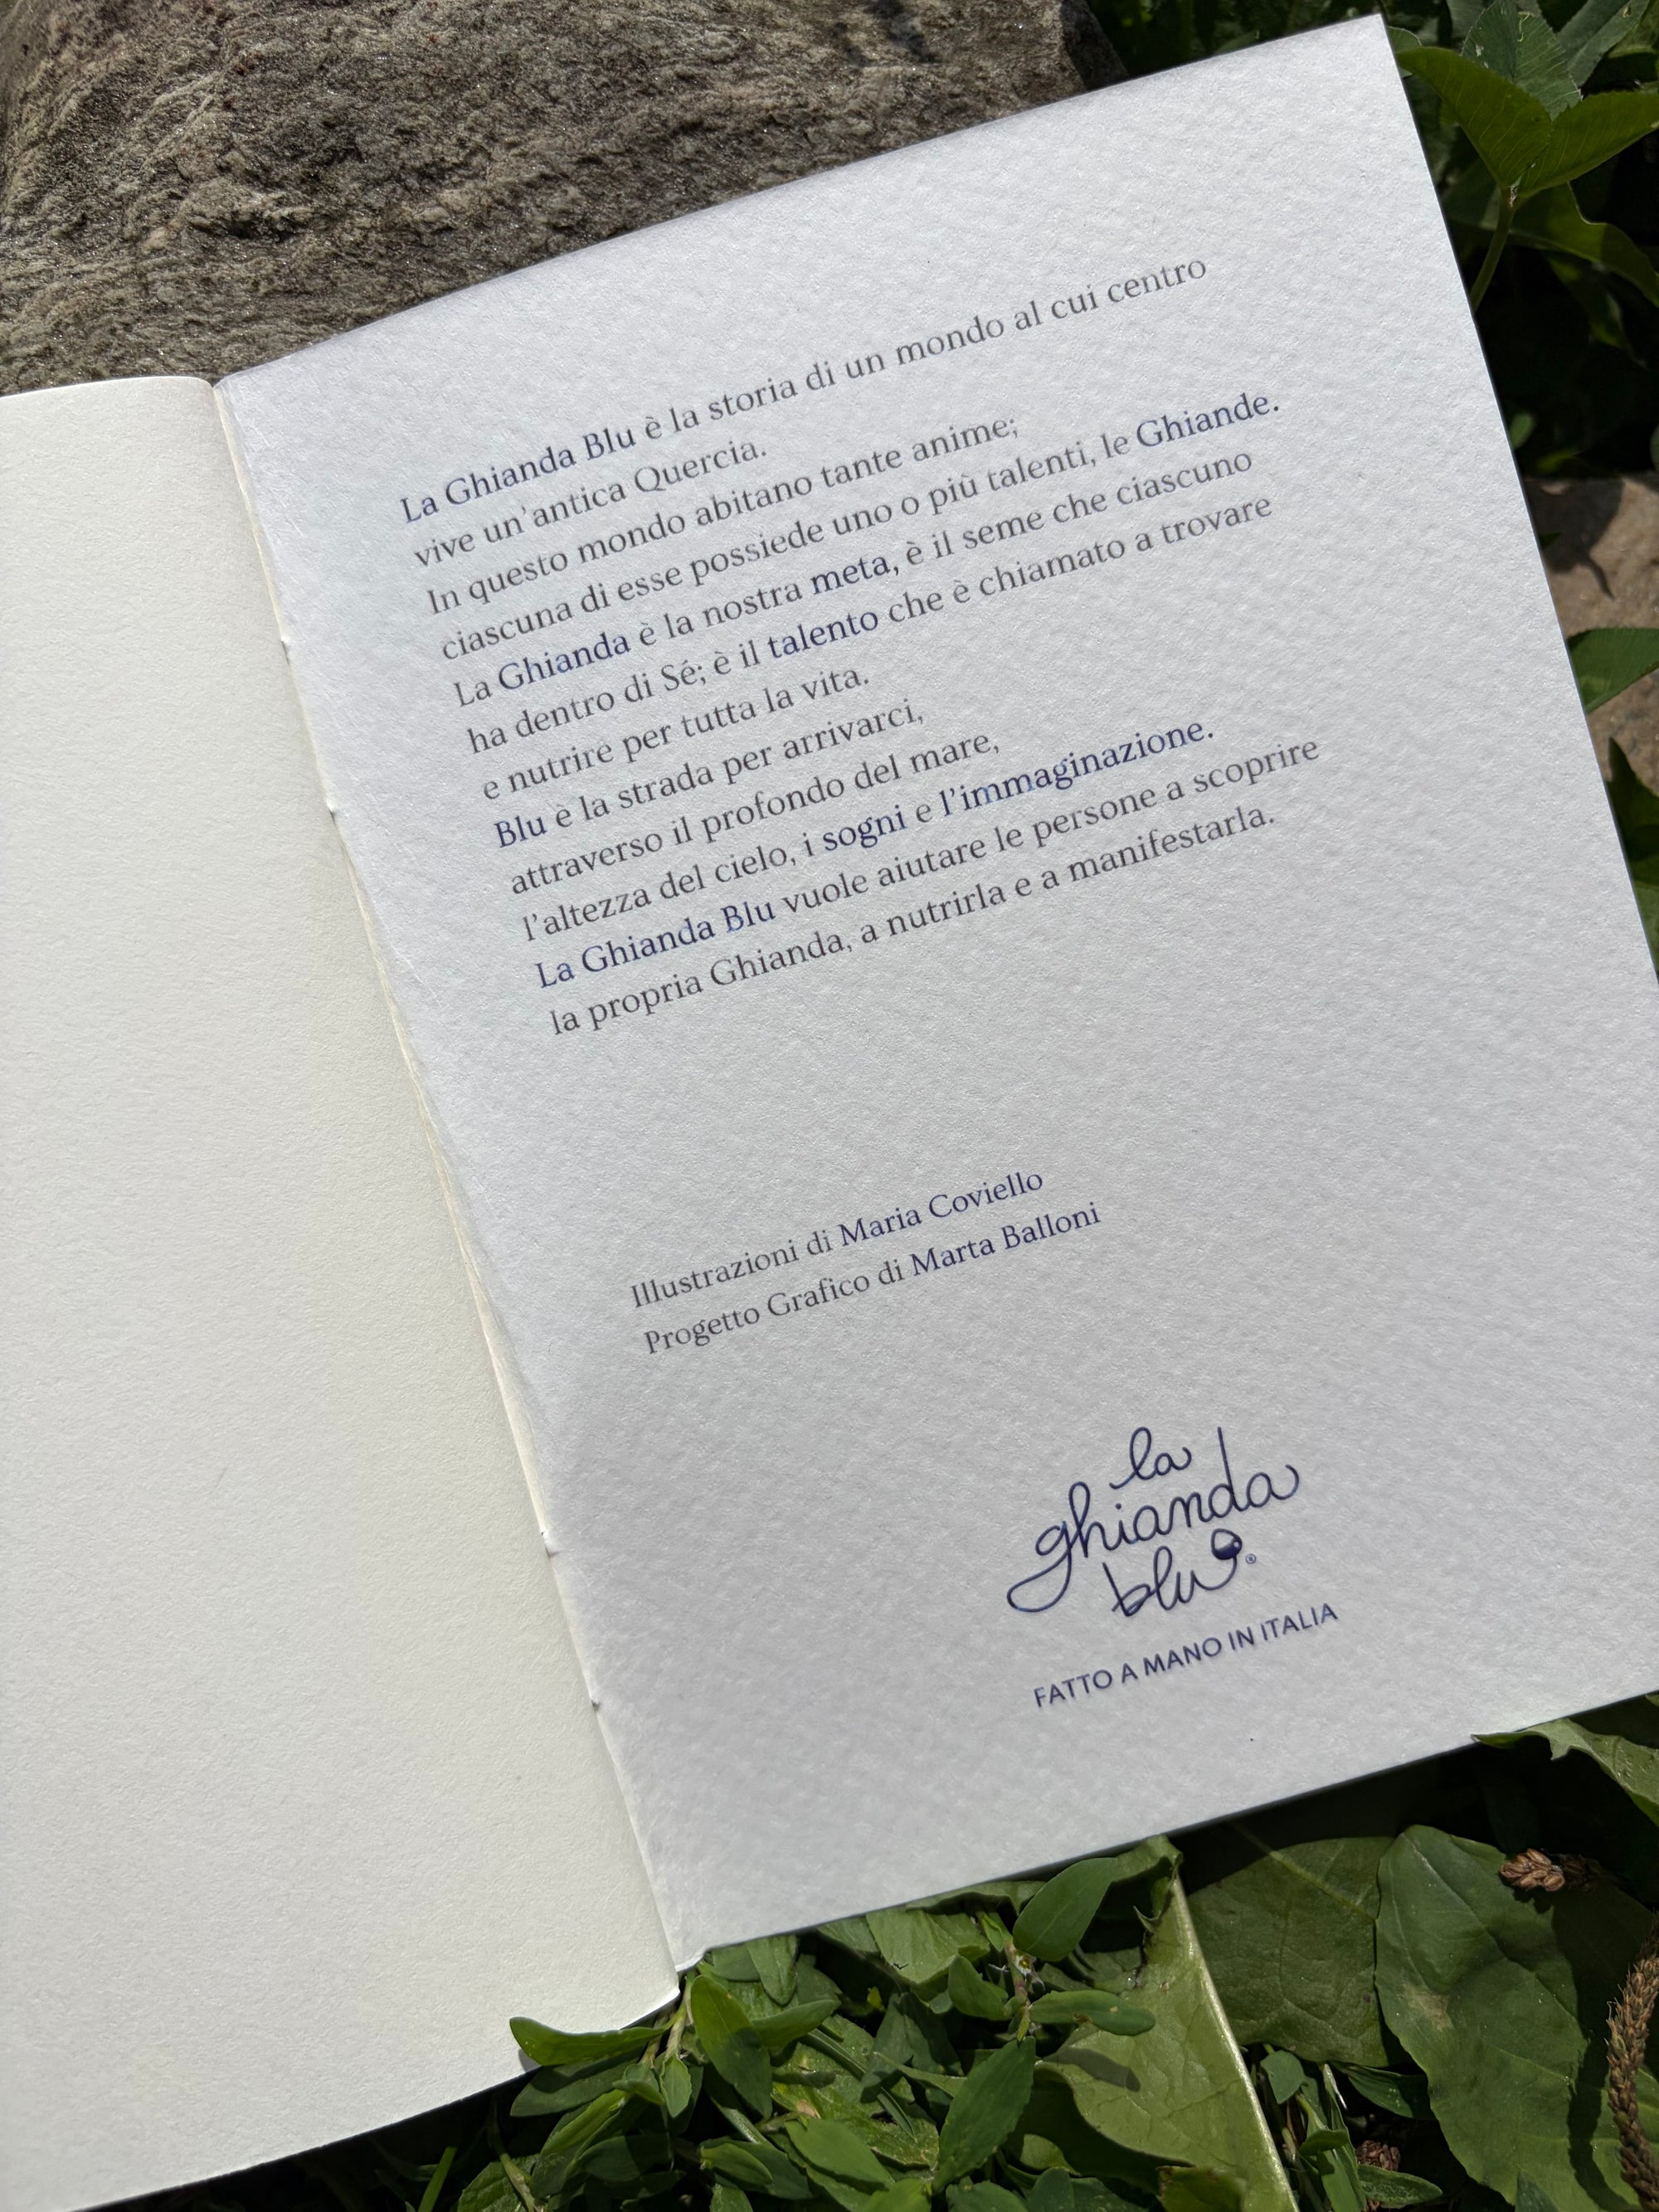 La Ghianda Blu è la storia di un mondo al cui centro
vive un'antica Quercia.
In questo mondo abitano tante anime;
ciascuna di esse possiede uno o più talenti, le Ghiande.
La Ghianda è la nostra meta, è il seme che ciascuno
ha dentro di Sé; è il talento che è chiamato a trovare
e nutrire per tutta la vita.
Blu è la strada per arrivarci,
attraverso il profondo del mare,
l'altezza del cielo, i sogni e l'immaginazione.
La Ghianda Blu vuole aiutare le persone a scoprire
la propria Ghianda, a nutrirla e a manifestarla.
Illustrazioni di Maria Coviello
Progetto Grafico di Marta Balloni
la
ghianda
blu®
FATTO A MANO IN ITALIA